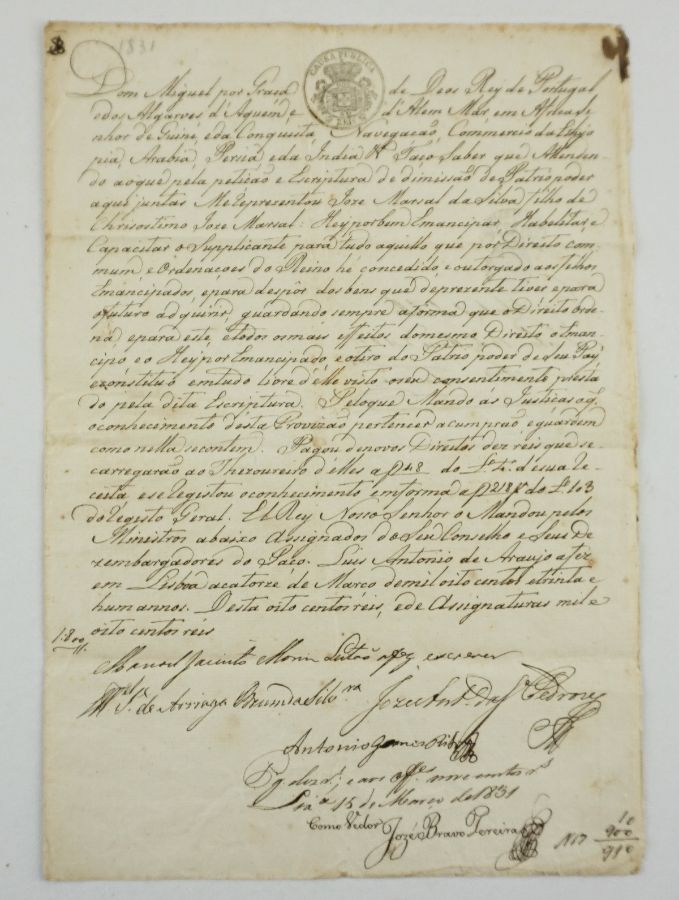 1831
CAUSA PUBLICA
Dom Miguel por Graça de Deos Rey de Portugal
e dos Algarves d'Aquem e d'Alem Mar, em Africa Se
nhor de Guiné, e da Conquista, Navegação, Commercio da Ethyo
pia, Arabia, Persia e da India &a Faço Saber que Attenden
do ao que pela petição e Escriptura de dimissão de Patrio poder
a que juntas Me reprezentou Joze Marsal da Silva filho de
Chrisostimo Joze Marsal: Hey por bem Emancipar, Habelitar e
Capacitar o Supplicante para tudo aquello que por Direito com
mum, e Ordenações do Reino hé concedido e outorgado aos filhos
Emancipados, e para despôr dos bens que de prezente tiver e para
o futuro adquirir, guardando sempre a forma que o Direito orde
na, e para este, e todos os mais effeitos do mesmo Direito o Eman
cipo e o Hey por Emancipado, e o tiro do Patrio poder de seu Pay
e constituo em tudo livre d'elle visto o seu consentimento presta
do pela dita Escriptura. Pelo que Mando as Justiças a q.
o conhecimento desta Provizão pertencer a cumprão e guardem
como nella se contem. Pagou de novos Direitos dez réis que se
carregarão ao Thezoureiro d'elles a f 48 do L.º 4.º de sua Re
ceita, e se registou o conhecimento em forma a f 218 v do L.º 103
do Registo Geral. El Rey Nosso Senhor o Mandou pelos
Ministros abaixo Assignados do Seu Conselho e Seus De
zembargadores do Paço. Luis Antonio de Araujo a fez
em Lisboa a catorze de Março de mil oito centos e trinta e
hum annos. Desta oito centos réis, e de Assignaturas mil e
oito centos réis
1:800
Manoel Jacinto a fez escrever
de Arriaga Brum da Silv.ra Joze Ant.º da S.ª Pedroza
Antonio Gomes Ribr.º
Pg. dez r.s e aos Off.es nove centos r.s
Lx.ª 15 de Março de 1831
Como Vedor
Jozé Bravo Pereira
10
900
910